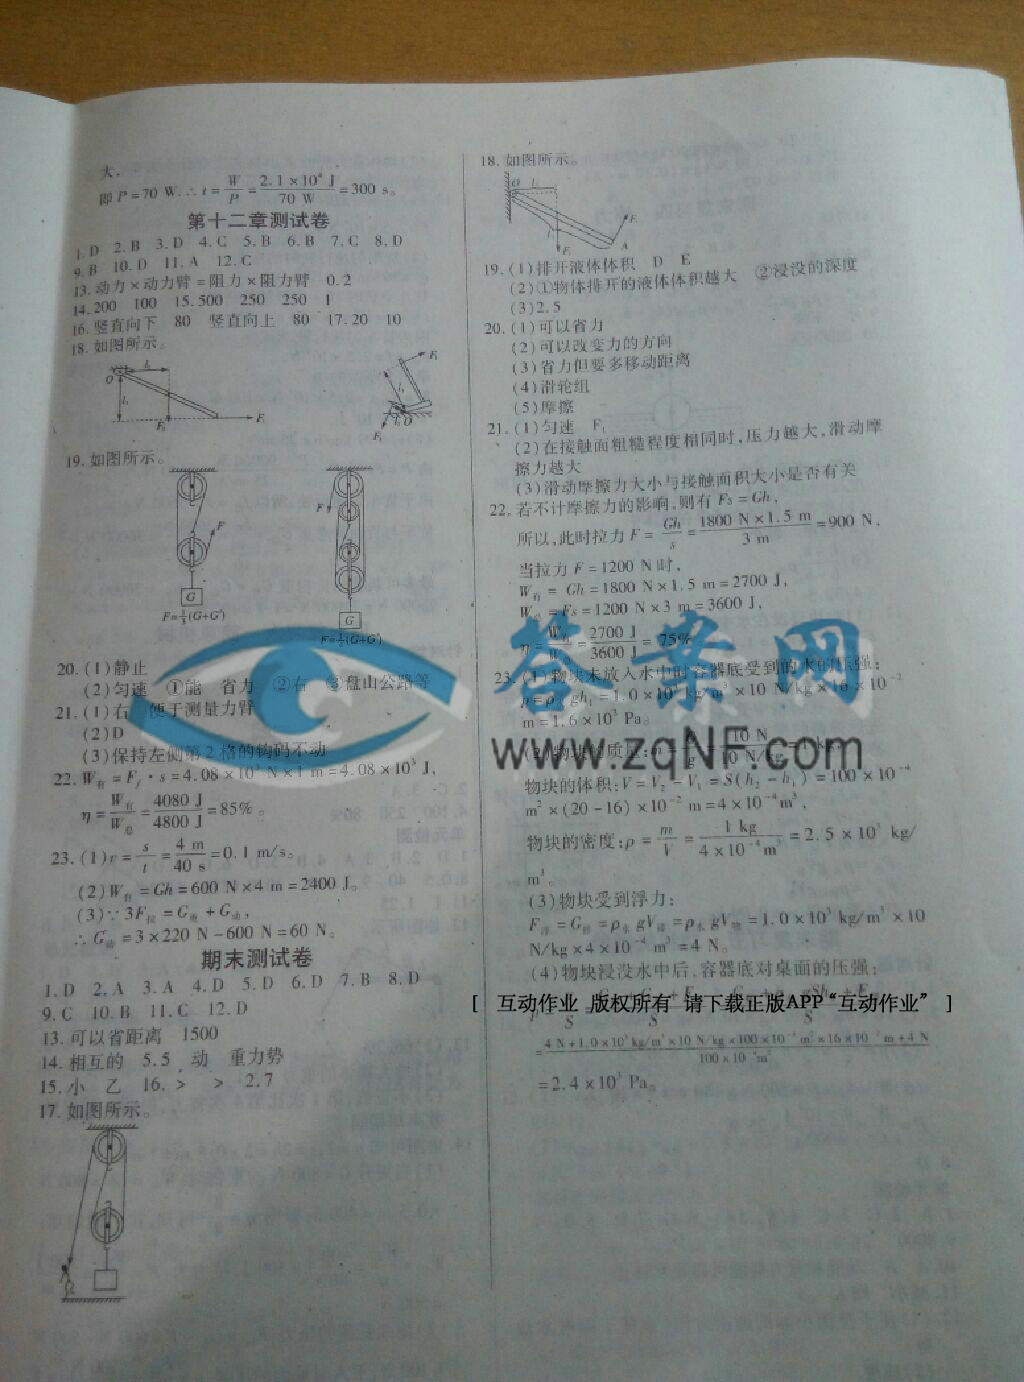 大.
即 P=70 W.∴t=W/P=2.1×10⁴ J/70 W=300 s。
第十二章测试卷
1.D 2.B 3.D 4.C 5.B 6.B 7.C 8.D
9.B 10.D 11.A 12.C
13.动力×动力臂=阻力×阻力臂 0.2
14.200 100 15.500 250 250 1
16.竖直向下 80 竖直向上 80 17.20 10
18.如图所示。
19.如图所示。
F
G
G
20.(1)静止
(2)匀速 ①能 省力 ②右 ③盘山公路等
21.(1)右 便于测量力臂
(2)D
(3)保持左侧第2格的钩码不动
22.W有=Ff·s=4.08×10³ N×1 m=4.08×10³ J,
η=W有/W总=4080 J/4800 J=85%。
23.(1)v=s/t=4 m/40 s=0.1 m/s。
(2)W有=Gh=600 N×4 m=2400 J。
(3)∵3F拉=G物+G动,
∴G动=3×220 N-600 N=60 N。
期末测试卷
1.D 2.A 3.A 4.D 5.D 6.D 7.B 8.D
9.C 10.B 11.C 12.D
13.可以省距离 1500
14.相互的 5.5 动 重力势
15.小 乙 16.> > 2.7
17.如图所示。
18.如图所示。
19.(1)排开液体体积 D E
(2)①物体排开的液体体积越大 ②浸没的深度
(3)2.5
20.(1)可以省力
(2)可以改变力的方向
(3)省力但要多移动距离
(4)滑轮组
(5)摩擦
21.(1)匀速 F₁
(2)在接触面粗糙程度相同时,压力越大,滑动摩
擦力越大
(3)滑动摩擦力大小与接触面积大小是否有关
22.若不计摩擦力的影响,则有 Fs=Gh,
所以,此时拉力 F=Gh/s=1800 N×1.5 m/3 m=900 N.
当拉力 F=1200 N时,
W有=Gh=1800 N×1.5 m=2700 J,
W总=Fs=1200 N×3 m=3600 J,
η=W有/W总=2700 J/3600 J=75%
23.(1)物块未放入水中时容器底受到的水的压强:
p=ρ水gh₁=1.0×10³ kg/m³×10 N/kg×16×10⁻²
m=1.6×10³ Pa。
物块的体积:V=V₂-V₁=S(h₂-h₁)=100×10⁻⁴
m²×(20-16)×10⁻² m=4×10⁻⁴ m³,
物块的密度:ρ=m/V=1 kg/4×10⁻⁴ m³=2.5×10³ kg/
m³。
(3)物块受到浮力:
F浮=G排=ρ水gV排=ρ水gV物=1.0×10³ kg/m³×10
N/kg×4×10⁻⁴ m³=4 N。
(4)物块浸没水中后,容器底对桌面的压强:
[ 互动作业 版权所有 请下载正版APP“互动作业” ]
=4 N+1.0×10³ kg/m³×10 N/kg×100×10⁻⁴ m²×16×10⁻² m+4 N/100×10⁻⁴ m²
=2.4×10³ Pa。
答案网
www.zqNF.com